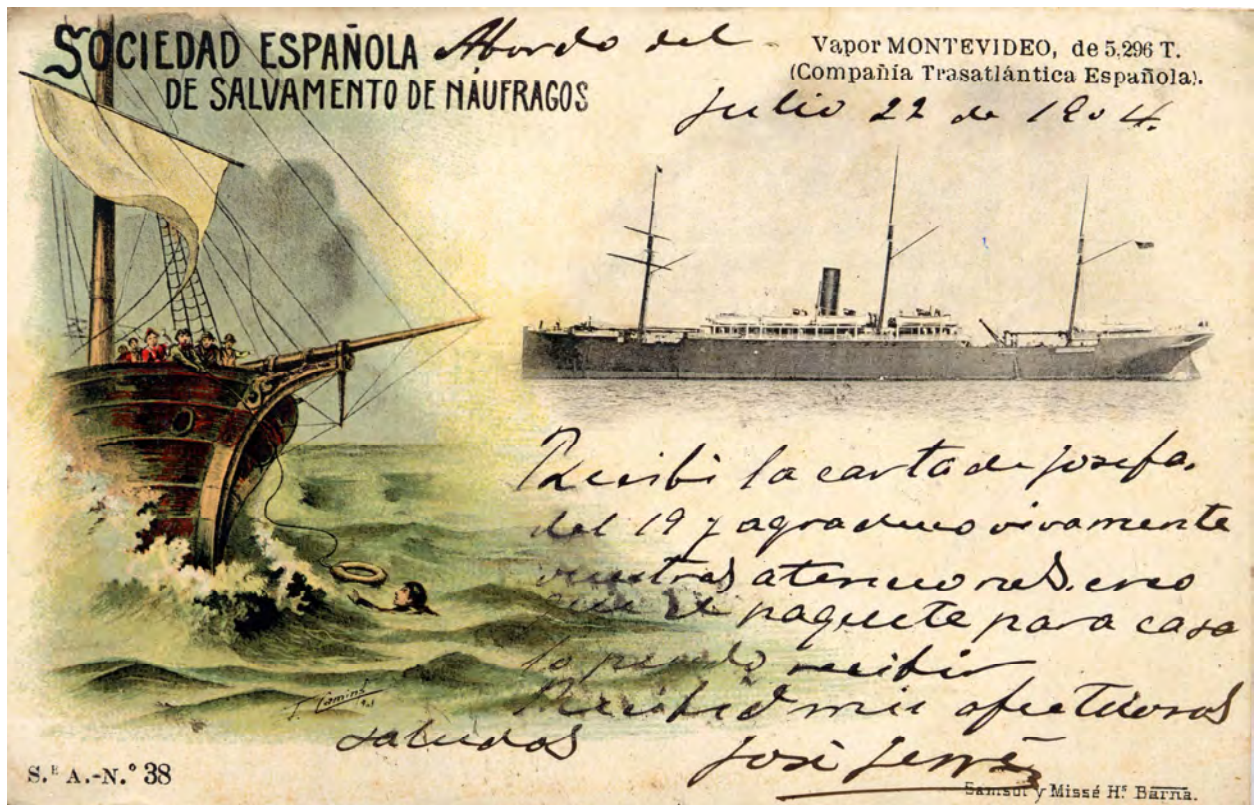 SOCIEDAD ESPAÑOLA
DE SALVAMENTO DE NÁUFRAGOS
Abordo del
Vapor MONTEVIDEO, de 5.296 T.
(Compañía Trasatlántica Española).
Julio 22 de 1904.
Recibi la carta de Josefa.
del 19 y agradezco vivamente
vuestras atenciones. creo
que el paquete para casa
lo recibir
Recibid mis afectuosos
saludos
José
S.E A.-N.º 38
Samsot y Missé H.s Barna.